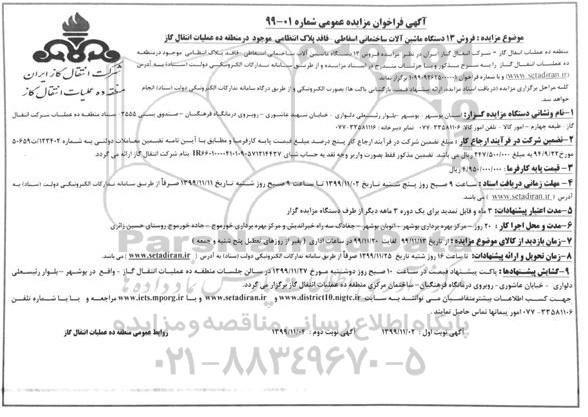 آگهی فراخوان مزایده عمومی شماره ۰۱-۹۹
موضوع مزایده : فروش ۱۳ دستگاه ماشین آلات ساختمانی اسقاطی فاقد پلاک انتظامی موجود در منطقه ده عملیات انتقال گاز
شرکت انتقال گاز ایران
منطقه ده عملیات انتقال گاز
منطقه ده عملیات انتقال گاز - شرکت انتقال گاز ایران در نظر مزایده فروش ۱۳ دستگاه ماشین آلات ساختمانی اسقاطی فاقد پلاک انتظامی موجود در منطقه
ده عملیات انتقال گاز را به شرح مذکور و با جزئیات مندرج در اسناد مزایده و از طریق سامانه تدارکات الکترونیکی دولت (ستاد) به آدرس
(www.setadiran.ir) و با شماره فراخوان برگزار نماید.
کلیه مراحل برگزاری مزایده (دریافت اسناد مزایده، ارائه پیشنهاد قیمت، بازگشایی پاکت ها) بصورت الکترونیکی و از طریق درگاه سامانه تدارکات الکترونیکی دولت (ستاد) انجام
خواهد شد.
۱- نام ونشانی دستگاه مزایده گزار: استان بوشهر - بوشهر - بلوار رئیسعلی دلواری - خیابان شهید عاشوری - روبروی درمانگاه فرهنگیان - صندوق پستی ۳۵۵۵ - ستاد منطقه ده عملیات شرکت انتقال
گاز - طبقه چهارم - امور کالا - تلفن امور کالا: ۳۳۵۸۱۱۰۶-۰۷۷ نمابر دبیرخانه : ۳۳۵۸۱۱۱۶-۰۷۷
۲- تضمین شرکت در فرآیند ارجاع کار: مبلغ تضمین شرکت در فرآیند ارجاع کار پنج درصد مبلغ قیمت پایه کارفرما و مطابق با آیین نامه تضمین معاملات دولتی به شماره ۱۲۳۴۰۲/ت۵۰۶۵۹
مورخ ۹۴/۹/۲۲ به مبلغ ۲۴۷/۵۰۰/۰۰۰ ریال می باشد. تضمین مذکور فقط بصورت واریز وجه نقد به حساب شبای بنام شرکت انتقال گاز ارائه گردد.
۳- قیمت پایه کارفرما: ۴/۹۵۰/۰۰۰/۰۰۰ ریال می باشد.
۴- مهلت زمانی دریافت اسناد : ساعت ۹ صبح روز پنج شنبه تاریخ ۱۳۹۹/۱۱/۰۲ تا ساعت ۹ صبح روز شنبه تاریخ ۱۳۹۹/۱۱/۱۱ صرفاً از طریق سامانه تدارکات الکترونیکی دولت (ستاد) به
آدرس (www.setadiran.ir) می باشد.
۵- مدت اعتبار پیشنهادات: ۳ ماه و قابل تمدید برای یک دوره ۳ ماهه دیگر از طرف دستگاه مزایده گزار
۶- مدت و محل اجرا کار : ۲۰ روز - مرکز بهره برداری بوشهر - اتوبان بوشهر - چغادک سه راه خیراندیش و مرکز بهره برداری خورموج - جاده خورموج روستای حسین زائری
۷- زمان بازدید از کالای موضوع مزایده : از تاریخ ۱۳۹۹/۱۱/۱۲ لغایت ۱۳۹۹/۱۱/۲۰ در ساعات اداری ( بغیر از روزهای تعطیل پنج شنبه و جمعه )
۸- زمان تحویل و ارائه پیشنهادات: تا ساعت ۱۶ روز شنبه تاریخ ۱۳۹۹/۱۱/۲۵ صرفاً از طریق سامانه تدارکات الکترونیکی دولت (ستاد) به آدرس (www.setadiran.ir) می باشد.
۹- گشایش پیشنهادها: پاکت پیشنهاد قیمت در ساعت ۱۰ صبح روز دوشنبه مورخ ۱۳۹۹/۱۱/۲۷ در سالن جلسات منطقه ده عملیات انتقال گاز - واقع در بوشهر - بلوار رئیسعلی
دلواری - خیابان عاشوری - روبروی درمانگاه فرهنگیان - ساختمان مرکزی منطقه ده عملیات انتقال گاز برگزار می گردد.
جهت کسب اطلاعات بیشتر متقاضیان می توانند به سایت www.district10.nigtc.ir و www.setadiran.ir و یا www.iets.mporg.ir مراجعه و یا با شماره تلفن
۳۳۵۸۱۱۰۶-۰۷۷ امور پیمانها تماس حاصل نمایند.
آگهی نوبت اول : ۱۳۹۹/۱۱/۰۲ آگهی نوبت دوم : ۱۳۹۹/۱۱/۰۴ روابط عمومی منطقه ده عملیات انتقال گاز
پایگاه اطلاع رسانی مناقصه و مزایده
۰۲۱-۸۸۳۴۹۶۷۰-۵